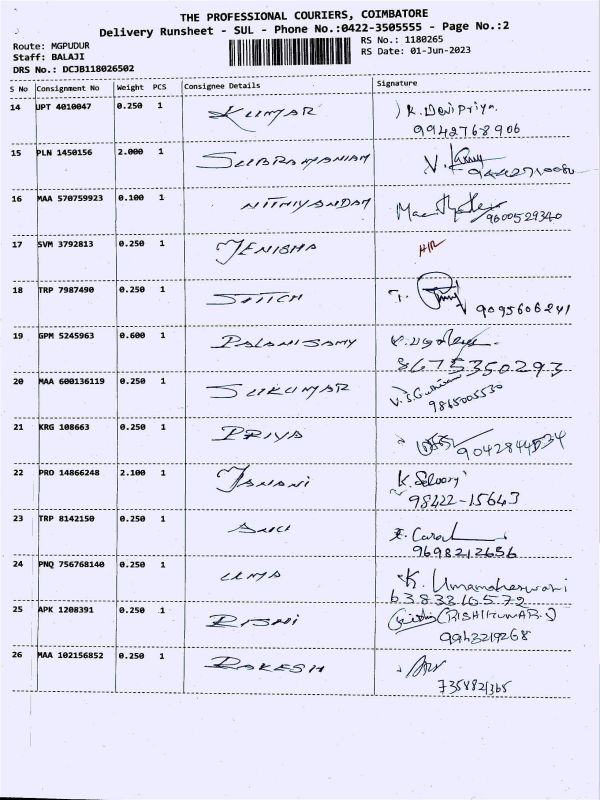 THE PROFESSIONAL COURIERS, COIMBATORE
Delivery Runsheet - SUL - Phone No.:0422-3505555 - Page No.:2
Route: MGPUDUR
RS No.: 1180265
Staff: BALAJI
RS Date: 01-Jun-2023
DRS No.: DCJB118026502
S No Consignment No Weight PCS Consignee Details Signature
14 UPT 4010047 0.250 1 KUMAR K. Devi Priya.
9942768906
15 PLN 1450156 2.000 1 SUBRAMANIAM V.
16 MAA 570759923 0.100 1 NITHIYANDAM
9600529340
17 SVM 3792813 0.250 1 JENISHA H/R
18 TRP 7987490 0.250 1 T.
9095606241
19 GPM 5245963 0.600 1 PALANISAMY
8675350293
20 MAA 600136119 0.250 1 SUKUMAR
9865005530
21 KRG 108663 0.250 1 PRIYA
22 PRO 14866248 2.100 1 JANANI K.
98422-15643
23 TRP 8142150 0.250 1
9698212656
24 PNQ 756768140 0.250 1 UMA K. Umamaheswari
6383316572
25 APK 1208391 0.250 1 RISHI (RISHIKUMAR.S)
9943219268
26 MAA 102156852 0.250 1 RAKESH
7358821365